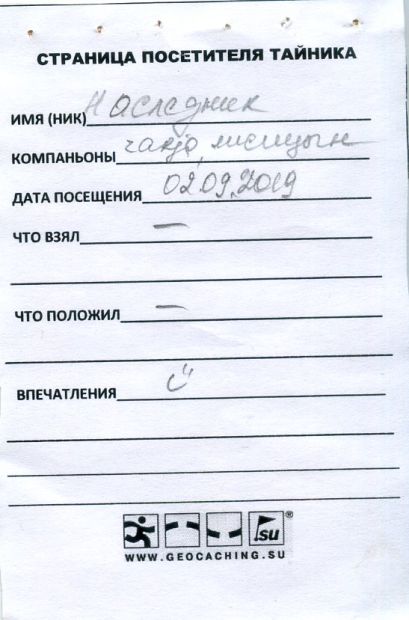 СТРАНИЦА ПОСЕТИТЕЛЯ ТАЙНИКА
ИМЯ (НИК) Наследник
КОМПАНЬОНЫ лисицын
ДАТА ПОСЕЩЕНИЯ 02.09.2019
ЧТО ВЗЯЛ —
ЧТО ПОЛОЖИЛ —
ВПЕЧАТЛЕНИЯ
.su ®
WWW.GEOCACHING.SU